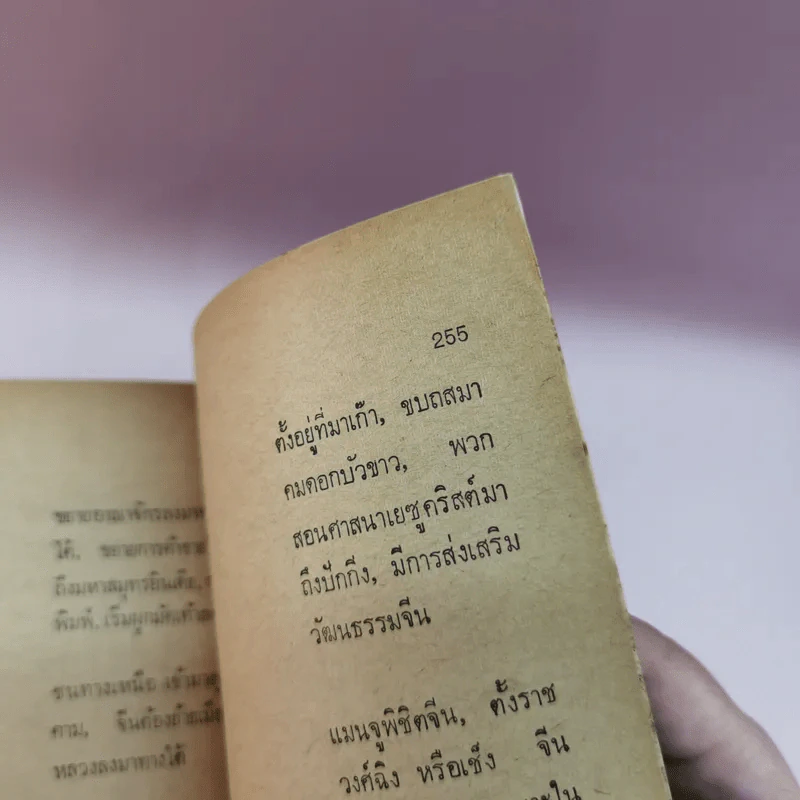 255
ตั้งอยู่ที่มาเก๊า, ขบถสมา
คมดอกบัวขาว, พวก
สอนศาสนาเยซูคริสต์มา
ถึงปักกิ่ง, มีการส่งเสริม
วัฒนธรรมจีน
แมนจูพิชิตจีน, ตั้งราช
วงศ์ฉิง หรือเช็ง จีน
ได้, ขยายการค้าขาย
ถึงมหาสมุทรอินเดีย,
พิมพ์, เริ่มผูกมัดเท้า
ชนทางเหนือ เข้ามา
คาม, จีนต้องย้ายเมือง
หลวงลงมาทางใต้